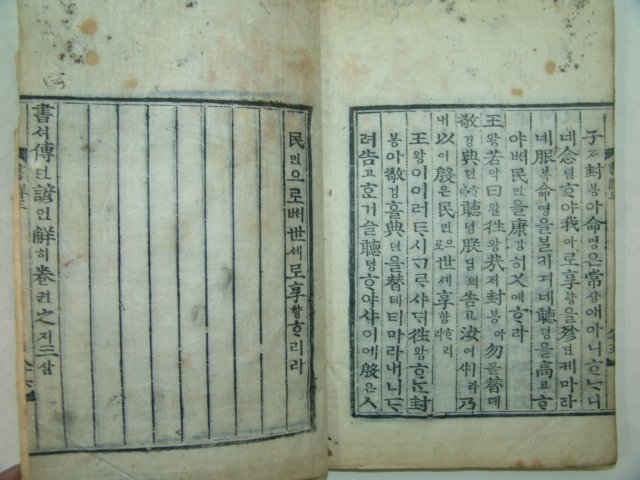 子ᄌᆞ封봉아命명은常샹애아니ᄒᆞᄂᆞ니
네念념ᄒᆞ야我아로享향을殄뎐제마라
네服복命명을볼키며네聽텽을高고ᄒᆞ
야ᄡᅥ民민을康강히乂예ᄒᆞ라
王왕若약曰왈往왕哉ᄌᆡ封봉아勿믈替톄
敬경典뎐聽텽朕딤의告고汝여ᄉᆞㅣ라乃
내以이殷은民민으로世셰享향ᄒᆞ리라
王왕이이러ᄐᆞ시니ᄅᆞ샤ᄃᆡ往왕ᄒᆞᄂᆞᆫ封
봉아敬경ᄒᆞᆯ典뎐을替톄티마라내너ᄃᆞ
려告고ᄒᆞᆫ거슬聽텽ᄒᆞ야ᅀᅡ이에殷은人
民민으로ᄡᅥ世셰로享향ᄒᆞ리라
書셔傳뎐諺언解ᄒᆡ卷권之지三삼